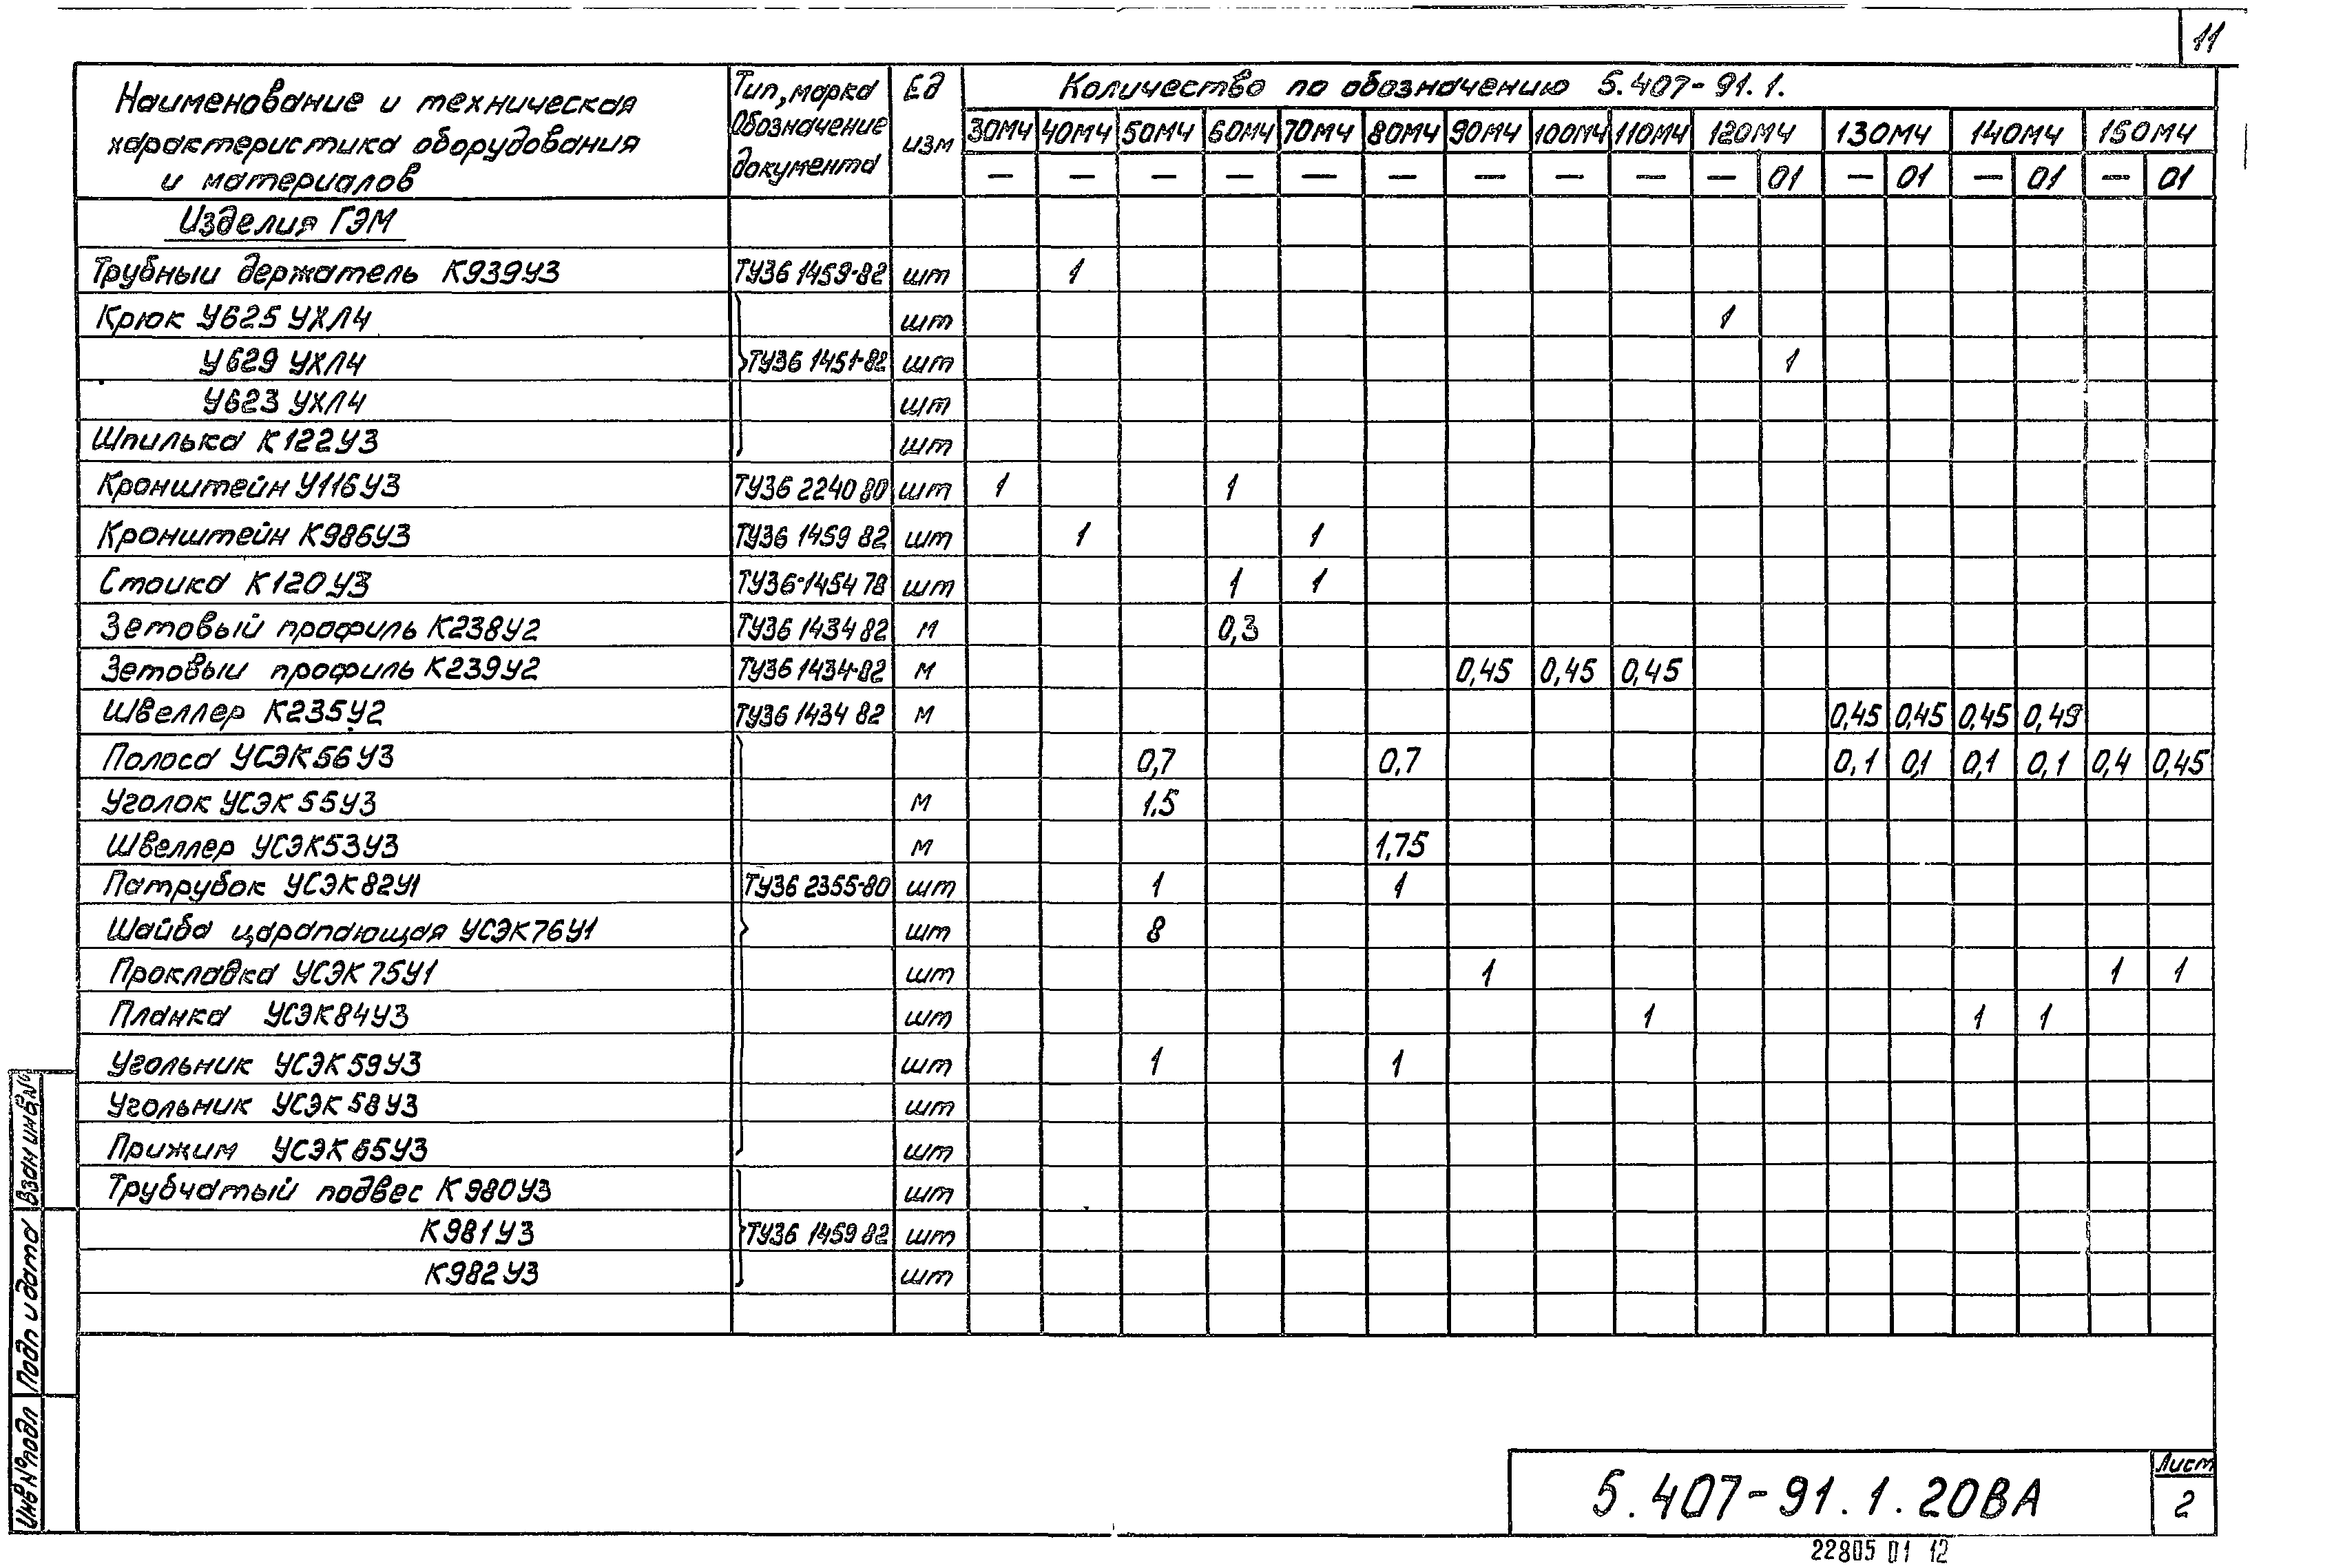 11
Наименование и техническая характеристика оборудования и материалов | Тип, марка Обозначение документа | Ед изм | Количество по обозначению 5.407-91.1.
30МЧ 40МЧ 50МЧ 60МЧ 70МЧ 80МЧ 90МЧ 100МЧ 110МЧ 120МЧ 130МЧ 140МЧ 150МЧ
— — — — — — — — — — 01 — 01 — 01 — 01
Изделия ГЭМ
Трубныи держатель К939У3 ТУ36 1459-82 шт 1
Крюк У625 УХЛ4 шт 1
У629 УХЛ4 ТУ36 1451-82 шт 1
У623 УХЛ4 шт
Шпилька К122У3 шт
Кронштейн У116У3 ТУ36 2240 80 шт 1 1
Кронштейн К986У3 ТУ36 1459 82 шт 1 1
Стоика К120У3 ТУ36-1454 78 шт 1 1
Зетовый профиль К238У2 ТУ36 1434 82 м 0,3
Зетовыи профиль К239У2 ТУ36 1434-82 м 0,45 0,45 0,45
Швеллер К235У2 ТУ36 1434 82 м 0,45 0,45 0,45 0,49
Полоса УСЭК56У3 0,7 0,7 0,1 0,1 0,1 0,1 0,4 0,45
Уголок УСЭК 55У3 м 1,5
Швеллер УСЭК53У3 м 1,75
Патрубок УСЭК82У1 ТУ36 2355-80 шт 1 1
Шайба царапающая УСЭК76У1 шт 8
Прокладка УСЭК 75У1 шт 1 1 1
Планка УСЭК84У3 шт 1 1 1
Угольник УСЭК 59У3 шт 1 1
Угольник УСЭК 58У3 шт
Прижим УСЭК 65У3 шт
Трубчатый подвес К980У3 шт
К981У3 ТУ36 1459 82 шт
К982У3 шт
Взам инв.№
Подп и дата
Инв № подл
5.407-91.1.20ВА
Лист
2
22805 01 12